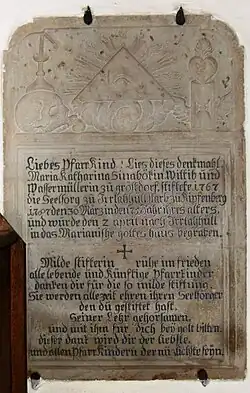 Liebes Pfarrkind! Lies dieses denkmahl
Maria Katharina Sinaböckin Wittib und
Wassermüllerin zu großdorf, stiftete 1767
die Seelsorg zu Irlahüll, starb zu Kipfenberg
1797 den 30 März in den alters,
und wurde den 2 april nach Irlahüll
in das Marianische gottes haus begraben.
Milde stifterin ruhe im frieden
alle lebende und Künftige Pfarrkinder
danken dir für die so milde stiftung.
Sie werden alle zeit ehren ihren Seelsorger
den du gestiftet hast.
Seiner Lehr gehorsamen,
und mit ihm für dich bey gott bitten.
dieser dank wird dir der liebste.
und allen Pfarrkindern der nützlichste seyn.